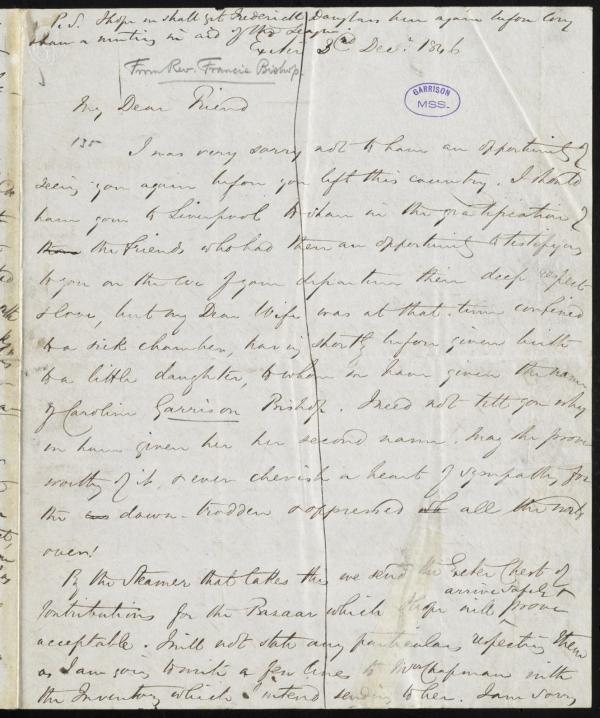 P.S. I hope we shall get Frederick Douglass here again before long
& have a meeting in aid of the League.
Exeter 3rd Decr. 1846
From Rev. Francis Bishop
GARRISON
MSS.
My Dear Friend
135 I was very sorry not to have an opportunity of
seeing you again before you left this country. I should
have gone to Liverpool to share in the gratification of
the friends who had then an opportunity to testifying
to you on the eve of your departure their deep respect
& love, but my Dear Wife was at that time confined
to a sick chamber, having shortly before given birth
to a little daughter, to whom we have given the name
of Caroline Garrison Bishop. I need not tell you why
we have given her her second name. May she prove
worthy of it, & ever cherish a heart of sympathy for
the down-trodden & oppressed all the world
over!
By the Steamer that takes this we send the Exeter Chest of
Contributions for the Bazaar which I hope will arrive safely & prove
acceptable. I will not state any particulars respecting them
as I am going to write a few lines to Mrs Chapman with
the Inventory which I intend sending to her. I am sorry